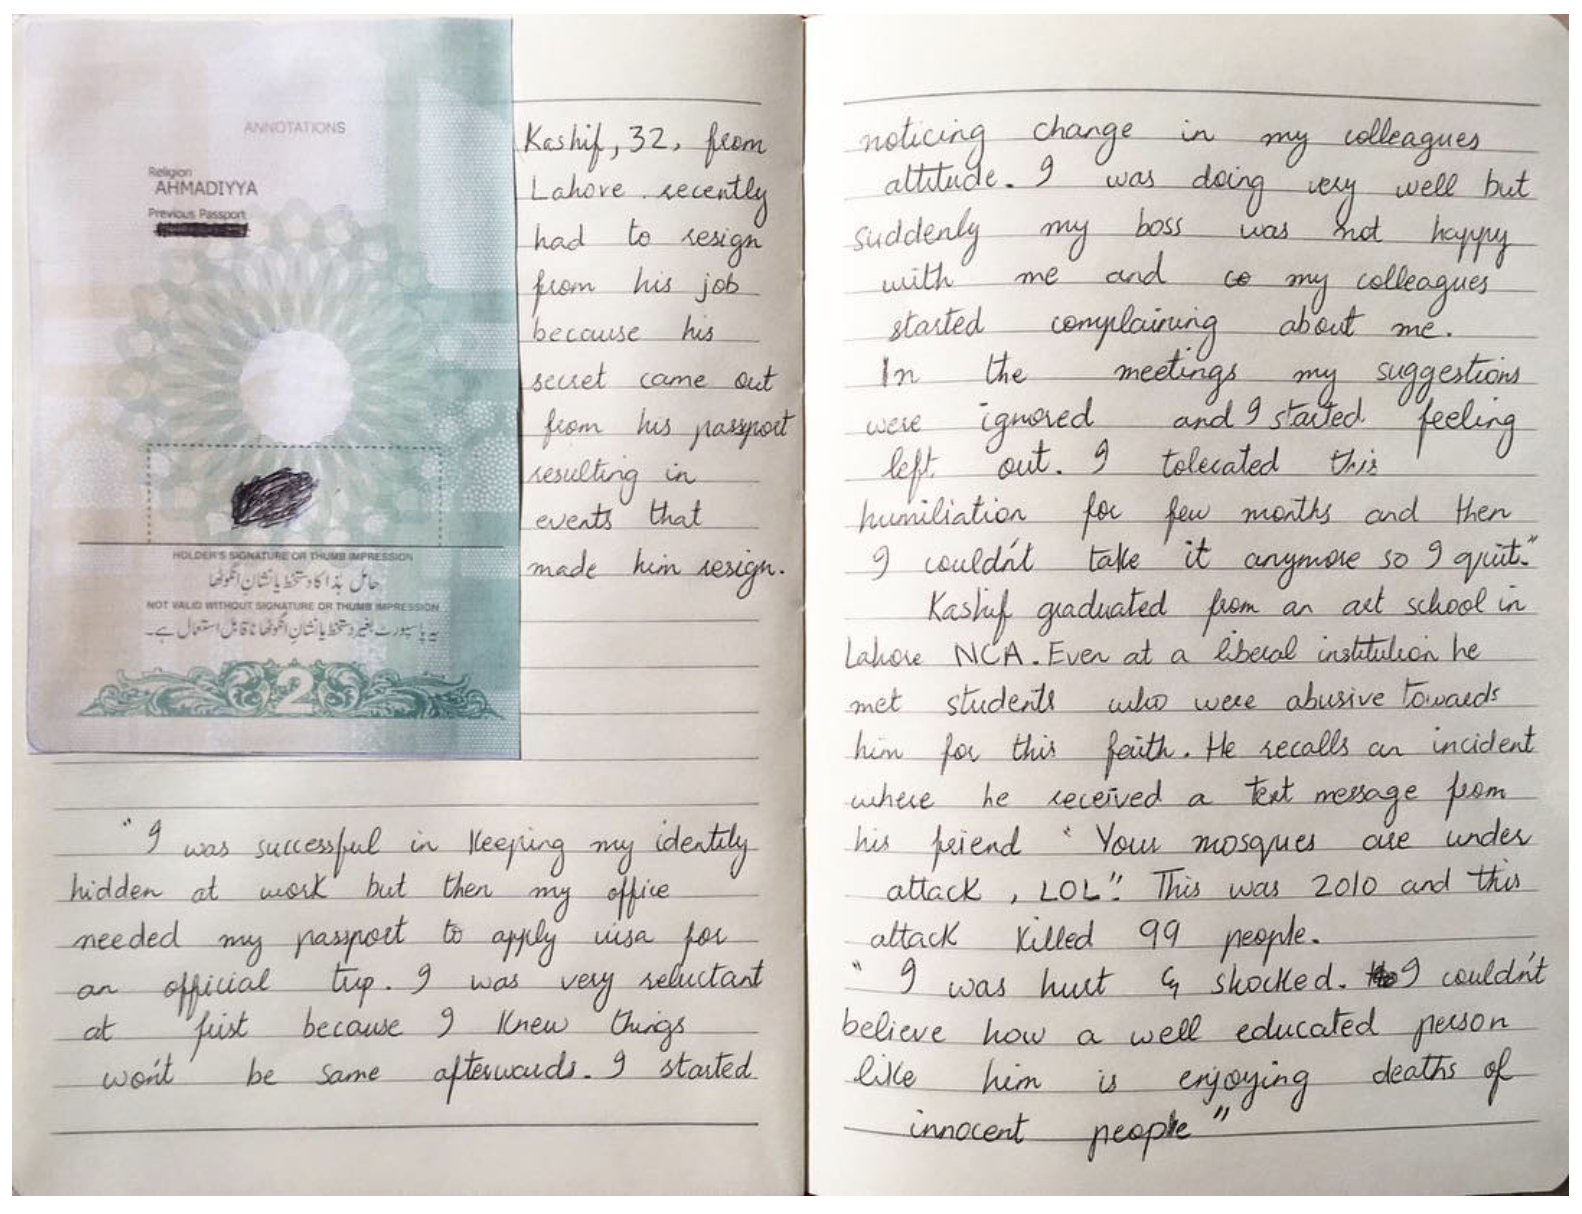 ANNOTATIONS
Religion
AHMADIYYA
Previous Passport
HOLDER'S SIGNATURE OR THUMB IMPRESSION
حامل ہذا کا دستخط یا نشان انگوٹھا
NOT VALID WITHOUT SIGNATURE OR THUMB IMPRESSION
یہ پاسپورٹ بغیر دستخط یا نشان انگوٹھا ناقابل استعمال ہے۔
2
Kashif, 32, from
Lahore recently
had to resign
from his job
because his
secret came out
from his passport
resulting in
events that
made him resign.
"I was successful in keeping my identity
hidden at work but then my office
needed my passport to apply visa for
an official trip. I was very reluctant
at first because I knew things
won't be same afterwards. I started
noticing change in my colleagues
attitude. I was doing very well but
suddenly my boss was not happy
with me and co my colleagues
started complaining about me.
In the meetings my suggestions
were ignored and I started feeling
left out. I tolerated this
humiliation for few months and then
I couldn't take it anymore so I quit."
Kashif graduated from an art school in
Lahore NCA. Even at a liberal institution he
met students who were abusive towards
him for this faith. He recalls an incident
where he received a text message from
his friend "Your mosques are under
attack, LOL". This was 2010 and this
attack killed 99 people.
"I was hurt & shocked. I couldn't
believe how a well educated person
like him is enjoying deaths of
innocent people"